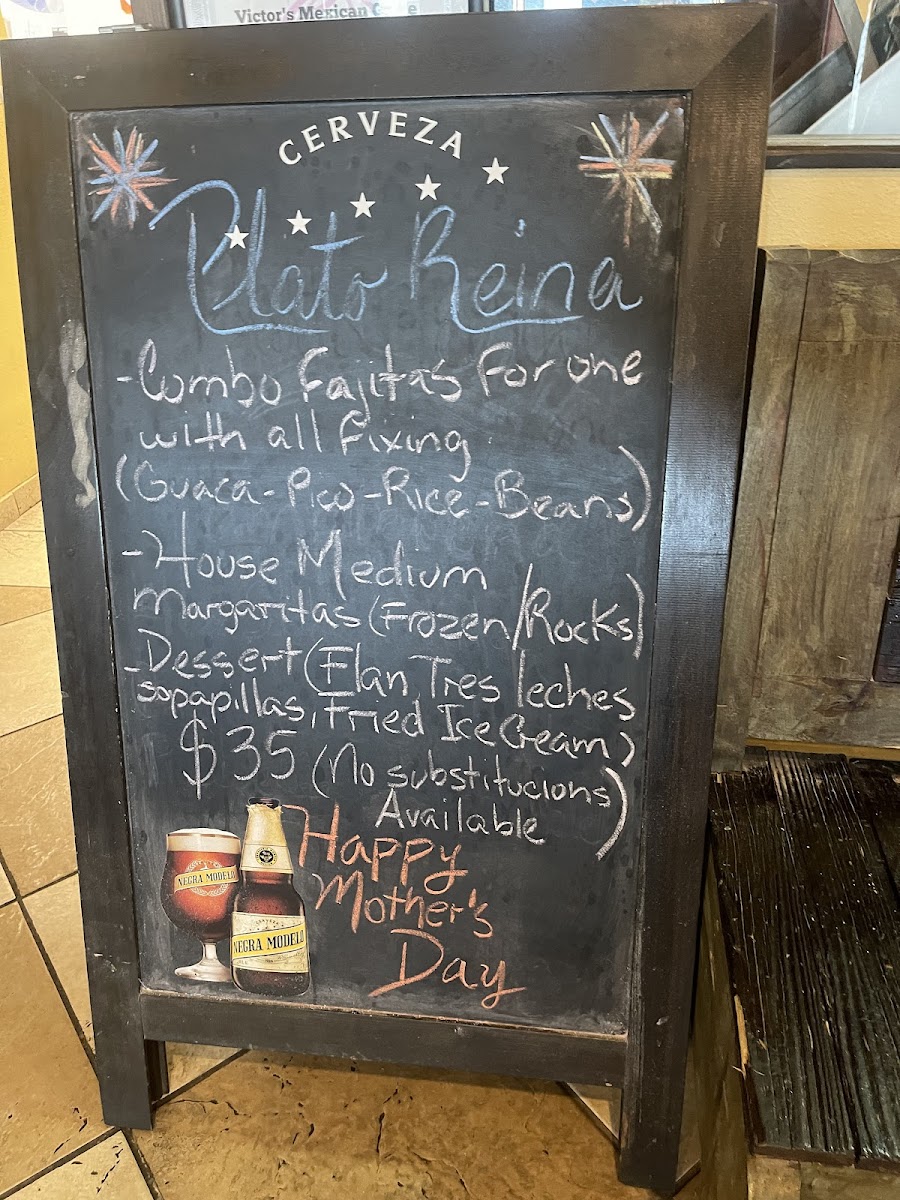 Victor's Mexican G
CERVEZA
Plato Reina
-Combo Fajitas For one
with all fixing
(Guaca-Pico-Rice-Beans)
-House Medium
Margaritas (Frozen/Rocks)
-Dessert (Flan, Tres leches
sopapillas, Fried Ice Cream)
$35 (No substitucions
Available)
NEGRA MODELO
NEGRA MODELO
Happy
Mother's
Day